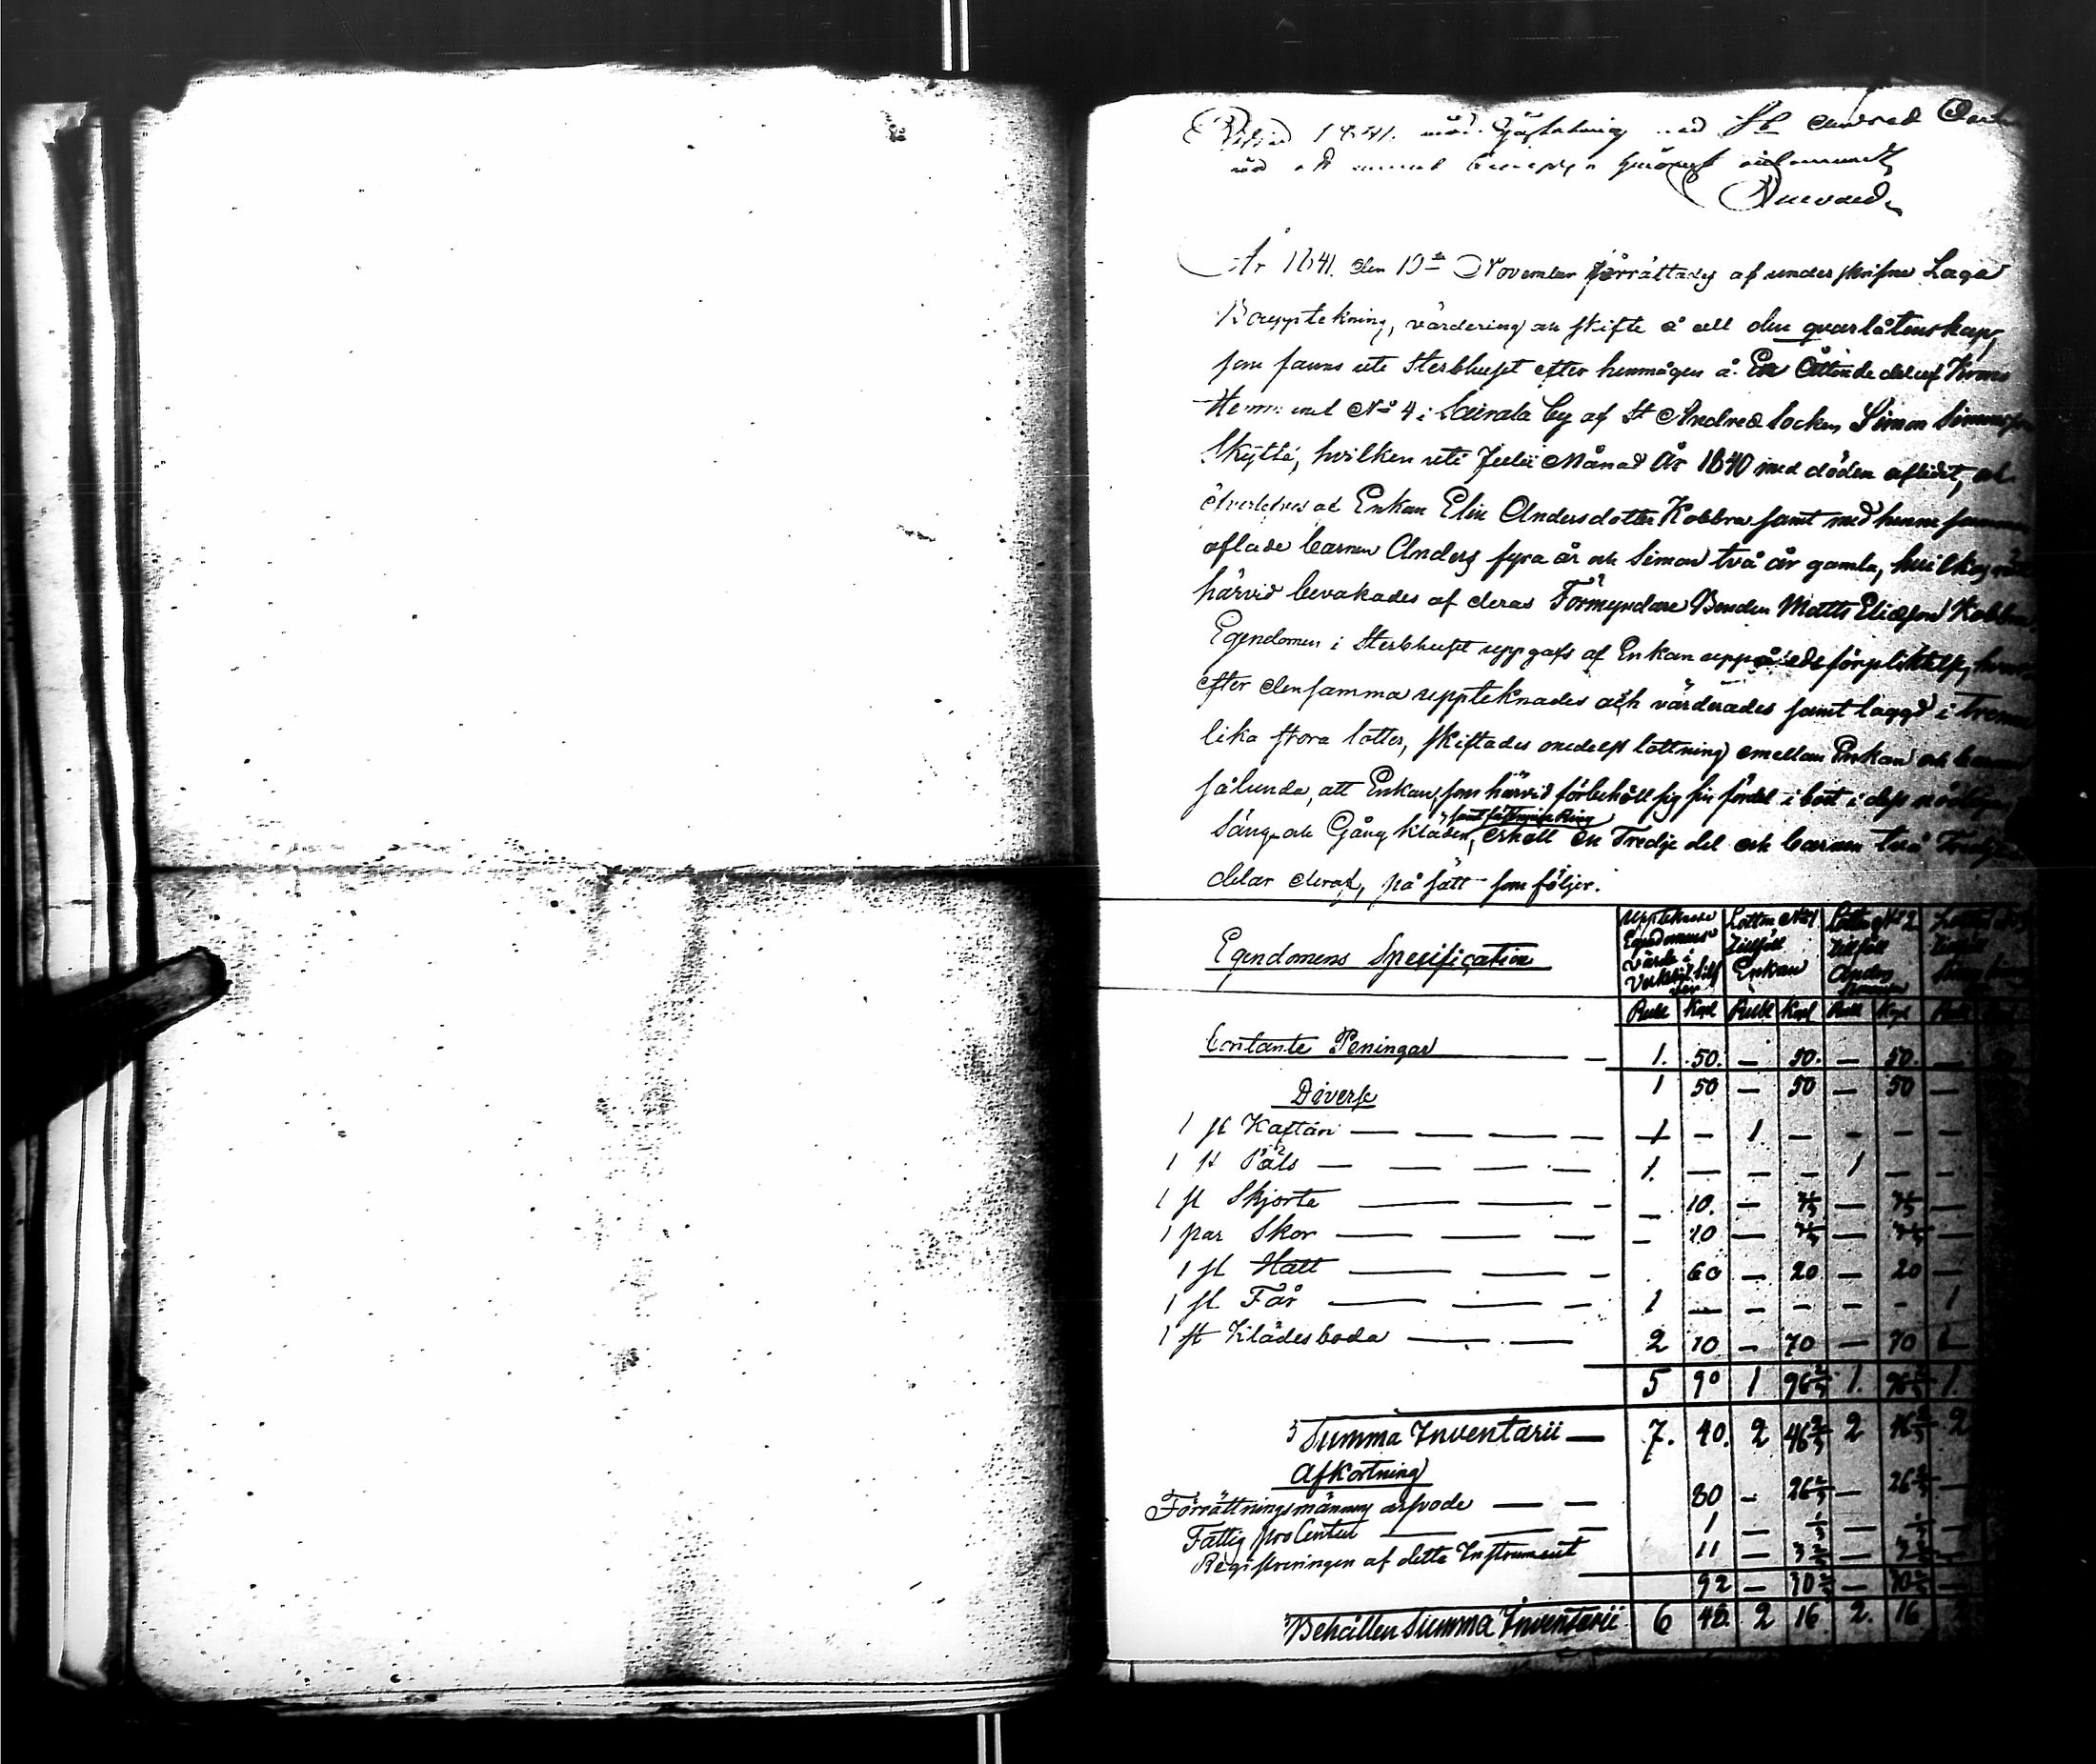 1841.
År 1841. den 19de November förrättades af underskrifne Laga
Bouppteckning, värdering och skifte å all den qvarlåtenskap,
som fanns uti Sterbhuset efter hemmågen å En Åttondedel af Krono
Hemmanet No 4 i Kairala by af St Andreæ Socken Simon Simonsson
Skyttä, hvilken uti Julii Månad År 1840 med döden aflidit, och
öfverlefves af Enkan Elin Andersdotter Kobbra samt med henne samman
aflade barnen Anders fyra år och Simon två år gamla, hvilkas rätt
härvid bevakades af deras Förmyndare Bonden Matts Eliasson Kobbra.
Egendomen i Sterbhuset uppgafs af Enkan uppå eds förpliktelse, hvar
efter densamma uppteknades och värderades samt lagd i Trenne
lika stora lotter, skiftades medelst lottning emellan Enkan och barnen
sålunda, att Enkan, som härvid förbehöll sig sin fördel i boet i dess nödiga
samt fästninge Ring
Säng och Gång kläder, erhöll en Tredje del och barnen två Tredje
delar deraf, på sätt som följer.
Egendomens Specification
Uppteknade Egendomens värde i Verkeligt Silfver
Lotten No 1 tillföll Enkan
Lotten No 2 tillföll Anders Simonsson
Rubl Kop Rubl Kop Rubl Kop
Contante Peningar — 1. 50. — 50. — 50. —
Diverse 1 50 — 50 — 50 —
1 st Kaftan — — — — 1 — 1 — — — —
1 st Päls — — — — 1. — — — 1 — —
1 st Skjorta — — — — 10. — — —
1 par Skor — — — — 10 — — —
1 st Hatt — — — 60 — 20 — 20 —
1 st Får — — — 1 — — — — — 1
1 st Klädesboda — — 2 10 — 70 — 70
5 90 1 96 2/3 1. 96 2/3 1.
Summa Inventarii — 7. 40. 2 46 2/3 2 46 2/3 2
Afkortning
Förrättningsmännens arfvode — — 80 — 26 2/3 — 26 2/3 —
Fattig pro Centen — — — 1 — 1/3 — 1/3 —
Registreringen af detta Instrument 11 — 3 2/3 — 3 2/3 —
92 — 30 2/3 — 30 2/3 —
Behållen Summa Inventarii 6 48 2 16 2. 16 2